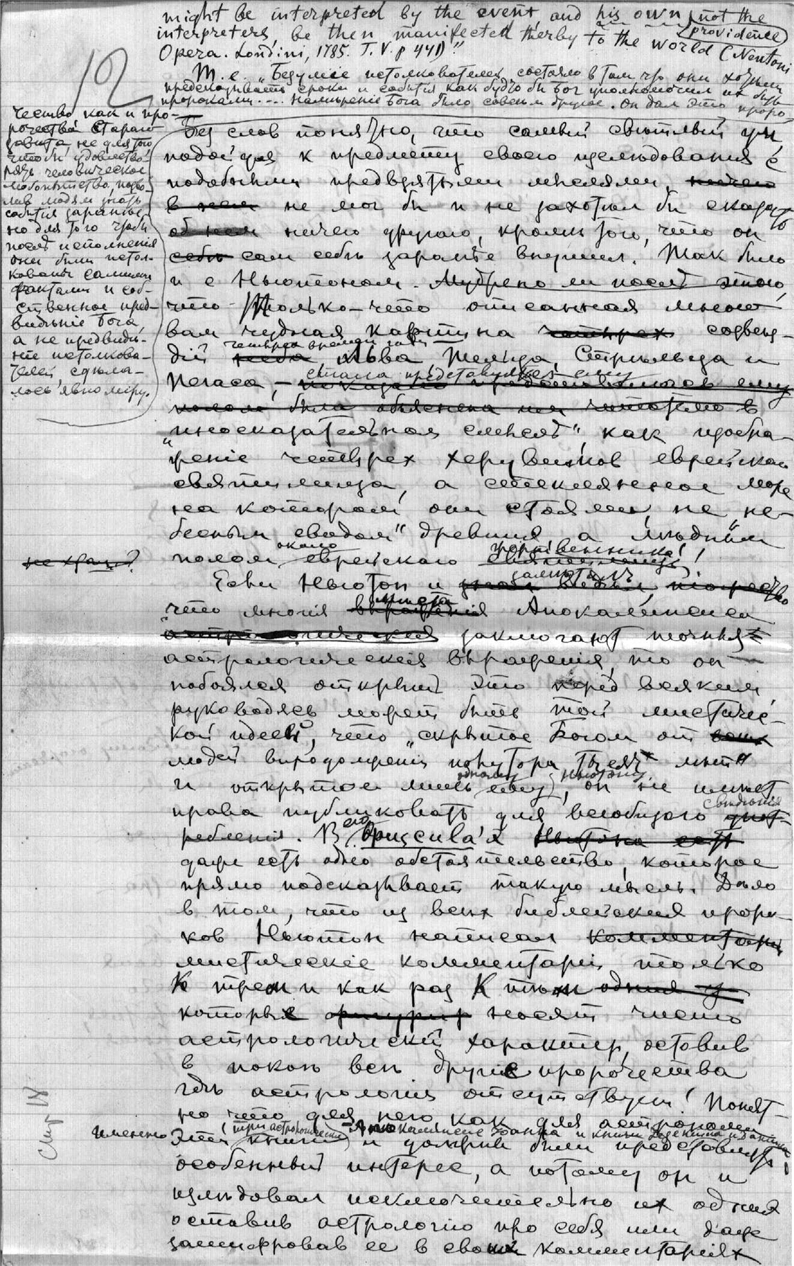 might be interpreted by the event, and his own not the
interpreters, be then manifected therby to the world (Newtoni
providence
Opera. Londini, 1785. T. V. p 449)"
12
Т. е. „Безумие истолкователей состояло в том что они хотели
предсказывать сроки и события как будто бы Бог уполномочил их быть
пророками... Намѣрение Бога было совсем другое. Он дал это проро-
чество как и про-
рочества Стараго
завѣта не для того
чтобы удовлетво-
рять человѣческое
любопытство, позво-
лив людям знать
события заранѣе,
но для того чтобы
послѣ исполнения
они были истол-
кованы самими
фактами и соб-
ственное пред-
видѣние Бога,
а не предвидѣ-
ние истолкова-
телей, сдѣла-
лось явно миру.
Без слов понятно, что самый свѣтлый ум
подойдя к предмету своего изслѣдования с
подобными предвзятыми мыслями ничего
в нем не мог бы и не захотѣл бы сказать
об нем ничего другого, кромѣ того, что он
себѣ сам себѣ заранѣе внушил. Так было
и с Ньютоном. Мудрено ли послѣ этого,
что Только-что описанная мною
вам чудная картина четырех созвѣз-
дий четырех времен года
неба Льва Тельца, Стрѣльца и
Пегаса, – стала представляться ему
„иносказательном смыслѣ", как изобра-
жение четырех херувимов еврейскаго
святилища, а стеклянное море
на котором они стояли, не не-
бесным сводом древния а мѣдным
не храма?
полом около еврейскаго жертвенника!
Если Ньютон и замѣтил,
что многия мѣста Апокалипсиса
астрологическия заключают точныя
астрологическия выражения, то он
побоялся открыть это перед всѣми
руководясь может быть той мистичес-
кой идеей, что „скрытое Богом от всѣх
людей впродолжении полутора тысяч лѣт"
и открытое лишь одному ему, Ньютону, он не имѣет
права публиковать для всеобщаго свѣдѣния
употребления. В его Opuscula'х
даже есть одно обстоятельство, которое
прямо подсказывает такую мысль. Дѣло
в том, что из всѣх библейских проро-
ков Ньютон написал комментарии
мистические комментарии только
К трем и как раз К тѣм
которые носят чисто
астрологический характер, оставив
в покоѣ всѣ другие пророчества
гдѣ астрология отсутствует! Понят-
но что для него как для астронома
Стр 18
именно
Эти три астрологические Апокалипсис Иоанна и книги Иезекииля и Даниила
и должны были представлять
особенный интерес, а потому он и
изслѣдовал исключительно их одних
оставив астрологию про себя или даже
зашифровав ее в своих комментариях